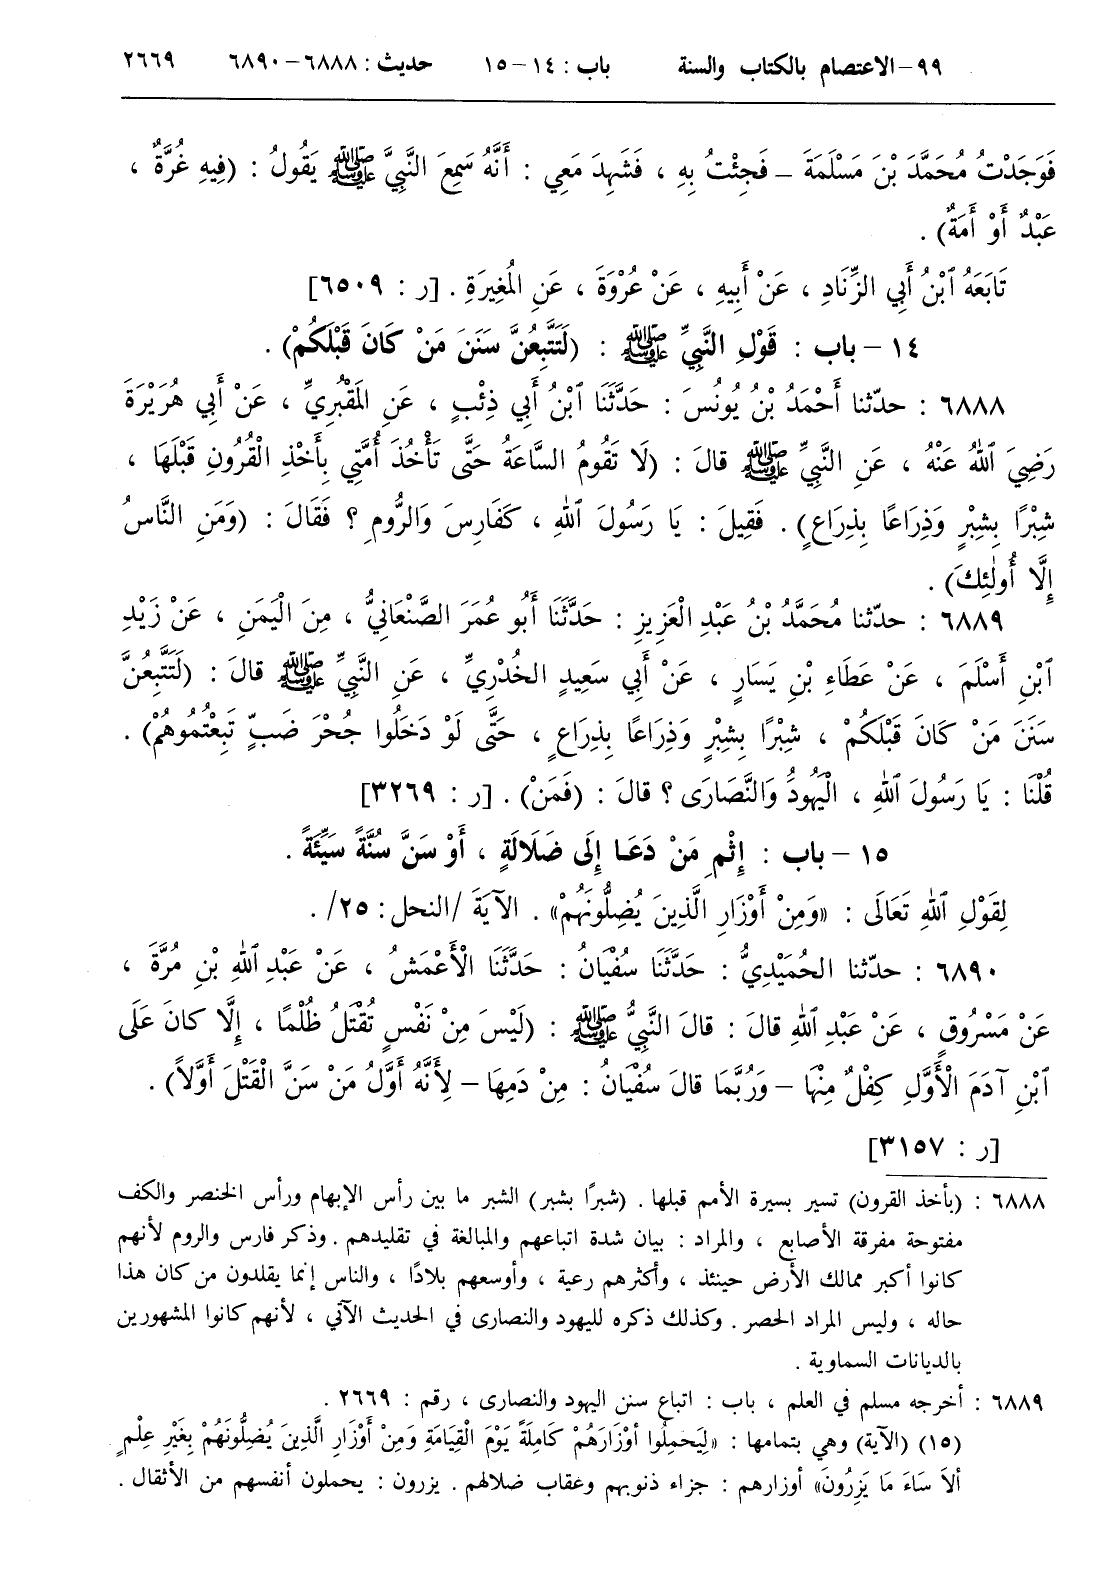 ٩٩ - الاعتصام بالكتاب والسنة باب : ١٤ - ١٥ حديث : ٦٨٨٨ - ٦٨٩٠ ٢٦٦٩
فَوَجَدْتُ مُحَمَّدَ بْنَ مَسْلَمَةَ – فَجِئْتُ بِهِ ، فَشَهِدَ مَعِي : أَنَّهُ سَمِعَ النَّبِيَّ ﷺ يَقُولُ : (فِيهِ غُرَّةٌ ،
عَبْدٌ أَوْ أَمَةٌ) .
تَابَعَهُ ٱبْنُ أَبِي الزِّنَادِ ، عَنْ أَبِيهِ ، عَنْ عُرْوَةَ ، عَنِ المُغِيرَةِ . [ر : ٦٥٠٩]
١٤ – باب : قَوْلِ النَّبِيِّ ﷺ : (لَتَتَّبِعُنَّ سَنَنَ مَنْ كَانَ قَبْلَكُمْ) .
٦٨٨٨ : حدّثنا أَحْمَدُ بْنُ يُونُسَ : حَدَّثَنَا ٱبْنُ أَبِي ذِئْبٍ ، عَنِ المَقْبُرِيِّ ، عَنْ أَبِي هُرَيْرَةَ
رَضِيَ ٱللهُ عَنْهُ ، عَنِ النَّبِيِّ ﷺ قالَ : (لَا تَقُومُ السَّاعَةُ حَتَّى تَأْخُذَ أُمَّتِي بِأَخْذِ الْقُرُونِ قَبْلَهَا ،
شِبْرًا بِشِبْرٍ وَذِرَاعًا بِذِرَاعٍ) . فَقِيلَ : يَا رَسُولَ ٱللهِ ، كَفَارِسَ وَالرُّومِ ؟ فَقَالَ : (وَمَنِ النَّاسُ
إِلَّا أُولٰئِكَ) .
٦٨٨٩ : حدّثنا مُحَمَّدُ بْنُ عَبْدِ الْعَزِيزِ : حَدَّثَنَا أَبُو عُمَرَ الصَّنْعَانِيُّ ، مِنَ الْيَمَنِ ، عَنْ زَيْدِ
ٱبْنِ أَسْلَمَ ، عَنْ عَطَاءِ بْنِ يَسَارٍ ، عَنْ أَبِي سَعِيدٍ الخُدْرِيِّ ، عَنِ النَّبِيِّ ﷺ قالَ : (لَتَتَّبِعُنَّ
سَنَنَ مَنْ كَانَ قَبْلَكُمْ ، شِبْرًا بِشِبْرٍ وَذِرَاعًا بِذِرَاعٍ ، حَتَّى لَوْ دَخَلُوا جُحْرَ ضَبٍّ تَبِعْتُمُوهُمْ) .
قُلْنَا : يَا رَسُولَ ٱللهِ ، الْيَهُودُ وَالنَّصَارَى ؟ قالَ : (فَمَنْ) . [ر : ٣٢٦٩]
١٥ – باب : إِثْمِ مَنْ دَعَا إِلَى ضَلَالَةٍ ، أَوْ سَنَّ سُنَّةً سَيِّئَةً .
لِقَوْلِ ٱللهِ تَعَالَى : «وَمِنْ أَوْزَارِ الَّذِينَ يُضِلُّونَهُمْ» . الآيَةَ /النحل: ٢٥/ .
٦٨٩٠ : حدّثنا الحُمَيْدِيُّ : حَدَّثَنَا سُفْيَانُ : حَدَّثَنَا الْأَعْمَشُ ، عَنْ عَبْدِ ٱللهِ بْنِ مُرَّةَ ،
عَنْ مَسْرُوقٍ ، عَنْ عَبْدِ ٱللهِ قالَ : قالَ النَّبِيُّ ﷺ : (لَيْسَ مِنْ نَفْسٍ تُقْتَلُ ظُلْمًا ، إِلَّا كانَ عَلَى
ٱبْنِ آدَمَ الْأَوَّلِ كِفْلٌ مِنْهَا – وَرُبَّمَا قالَ سُفْيَانُ : مِنْ دَمِهَا – لِأَنَّهُ أَوَّلُ مَنْ سَنَّ الْقَتْلَ أَوَّلاً) .
[ر : ٣١٥٧]
٦٨٨٨ : (بأخذ القرون) تسير بسيرة الأمم قبلها . (شبرًا بشبر) الشبر ما بين رأس الإبهام ورأس الخنصر والكف
مفتوحة مفرقة الأصابع ، والمراد : بيان شدة اتباعهم والمبالغة في تقليدهم . وذكر فارس والروم لأنهم
كانوا أكبر ممالك الأرض حينئذ ، وأكثرهم رعية ، وأوسعهم بلادًا ، والناس إنما يقلدون من كان هذا
حاله ، وليس المراد الحصر . وكذلك ذكره لليهود والنصارى في الحديث الآتي ، لأنهم كانوا المشهورين
بالديانات السماوية .
٦٨٨٩ : أخرجه مسلم في العلم ، باب : اتباع سنن اليهود والنصارى ، رقم : ٢٦٦٩ .
(١٥) (الآية) وهي بتمامها : «لِيَحمِلُوا أوْزَارَهُمْ كَامِلَةً يَوْمَ الْقِيَامَةِ وَمِنْ أَوْزَارِ الَّذِينَ يُضِلُّونَهُمْ بِغَيْرِ عِلْمٍ
ألاَ سَاءَ مَا يَزِرُونَ» أوزارهم : جزاء ذنوبهم وعقاب ضلالهم . يزرون : يحملون أنفسهم من الأثقال .